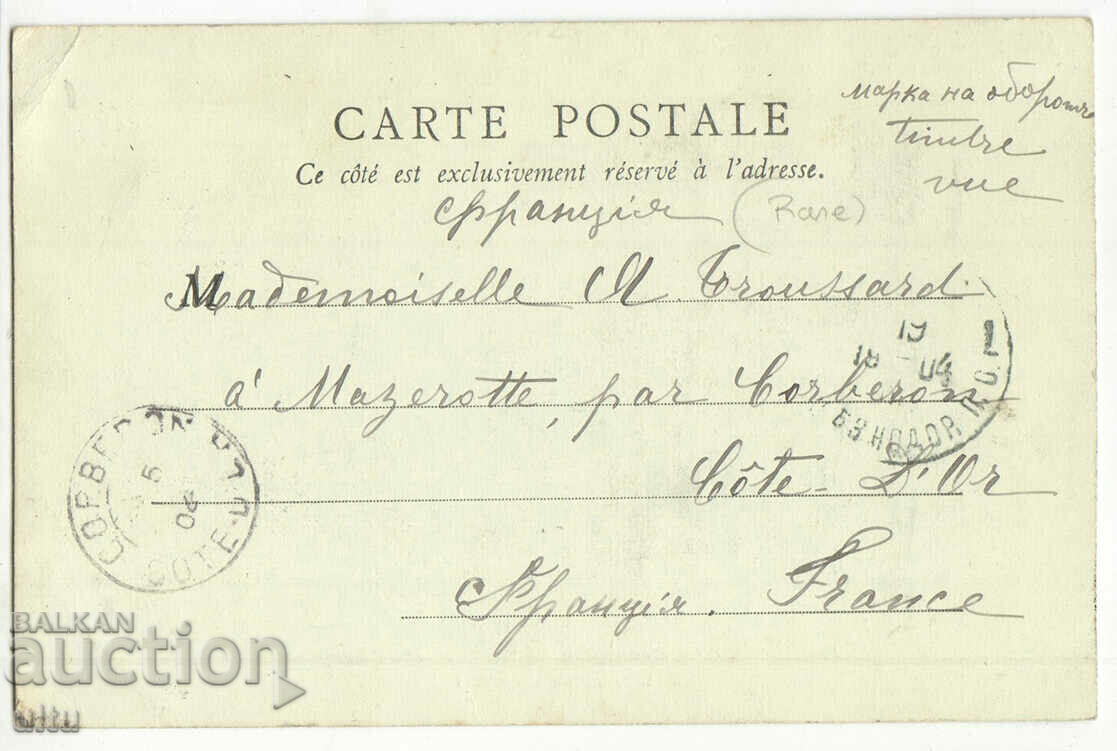 марка на обороте
CARTE POSTALE
timbre
Ce côté est exclusivement réservé à l'adresse.
vue
Франція (Rare)
Mademoiselle M Troussard
19
18 - 04
à Mazerotte, par Corberon
CORBERON
COTE-D'OR
5
04
Côte-D'Or
Франція. France
BALKAN
auction
ultu